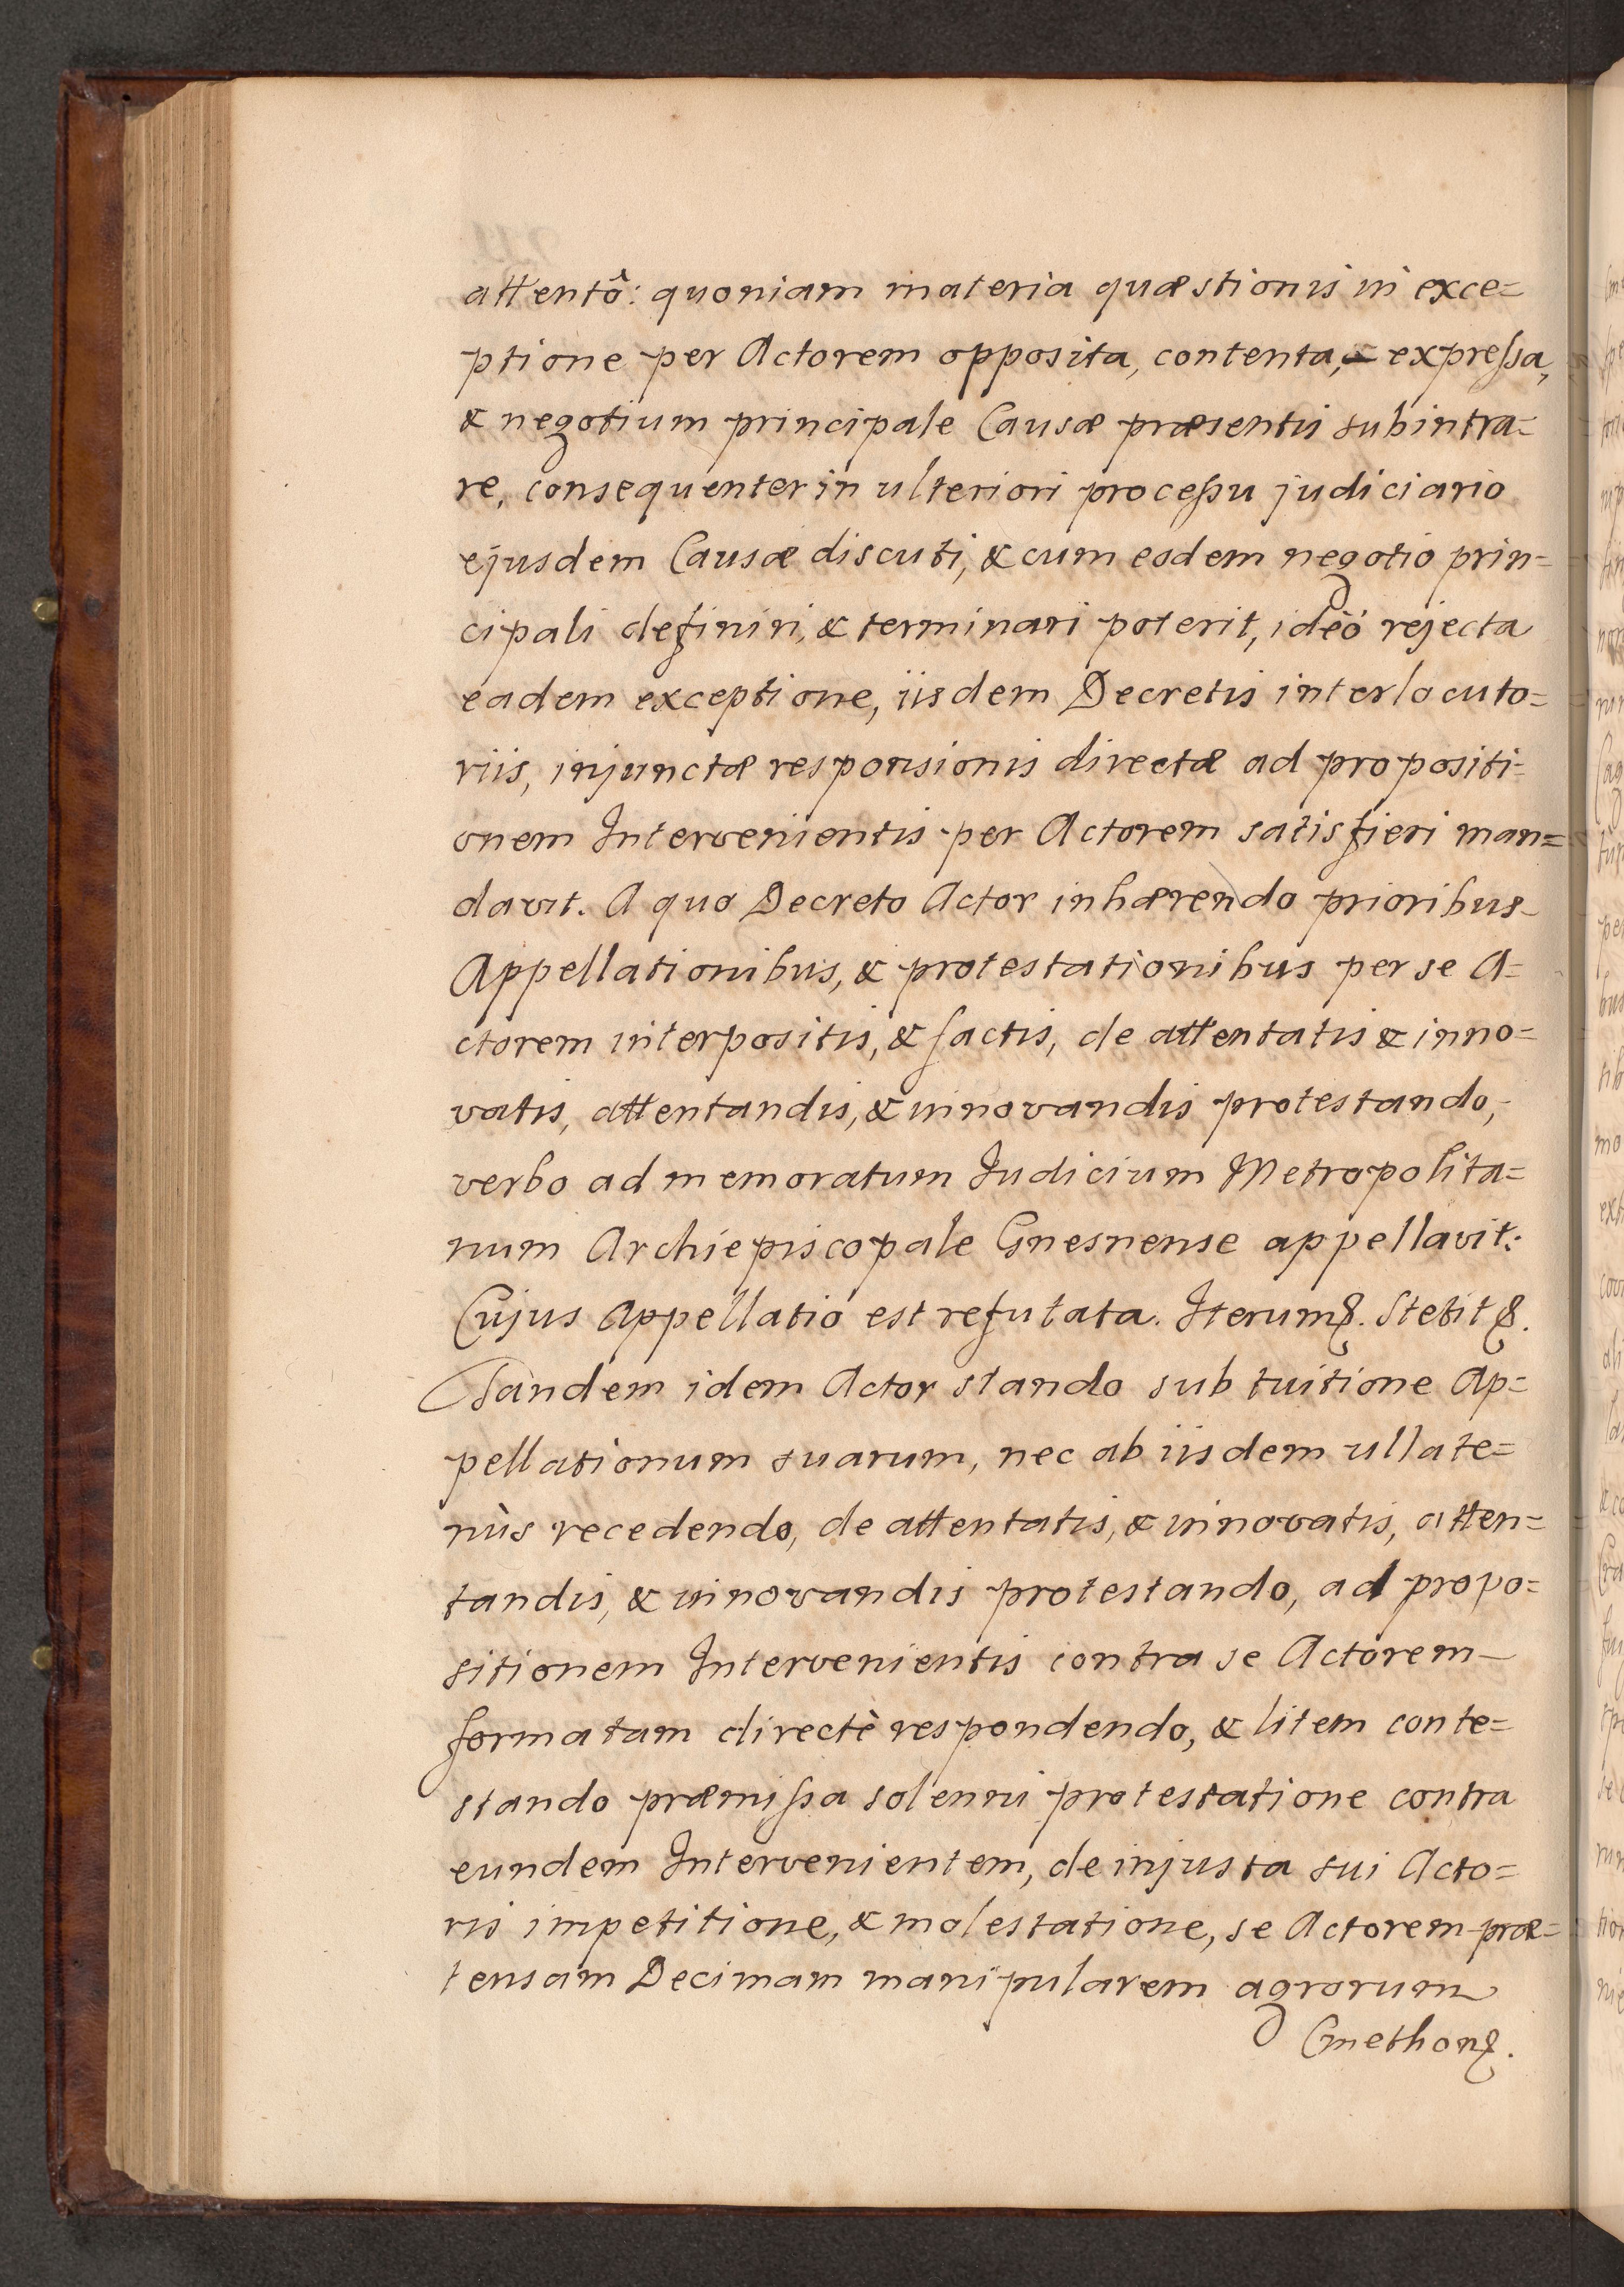 attentô: quoniam materia quæstionis in exce=
ptione per Actorem opposita, contenta, & expreſsa,
& negotium principale Causæ præsentis subintra=
re, consequenter in ulteriori proceſsu judiciario
ejusdem Causæ discuti, & cum eodem negotio prin=
cipali definiri, & terminari poterit, ideò rejecta
eadem exceptione, iisdem Decretis interlocuto=
riis, injunctæ responsionis directæ ad propositi=
onem Intervenientis per Actorem satisfieri man=
davit. A quo Decreto Actor inhærendo prioribus
Appellationibus, & protestationibus per se A=
ctorem interpositis, & factis, de attentatis & inno=
vatis, attentandis, & innovandis protestando,
verbo ad memoratum Iudicium Metropolita=
num Archiepiscopale Gnesnense appellavit:
Cujus Appellatio est refutata. Iterum&. Stetit &.
Tandem idem Actor stando sub tuitione Ap=
pellationum suarum, nec ab iisdem ullate=
nùs recedendo, de attentatis, & innovatis, atten=
tandis, & innovandis protestando, ad propo=
sitionem Intervenientis contra se Actorem
formatam directè respondendo, & litem conte=
stando præmiſsa solenni protestatione contra
eundem Intervenientem, de injusta sui Acto=
ris impetitione, & molestatione, se Actorem præ=
tensam Decimam manipularem agrorum
Gmethon&.